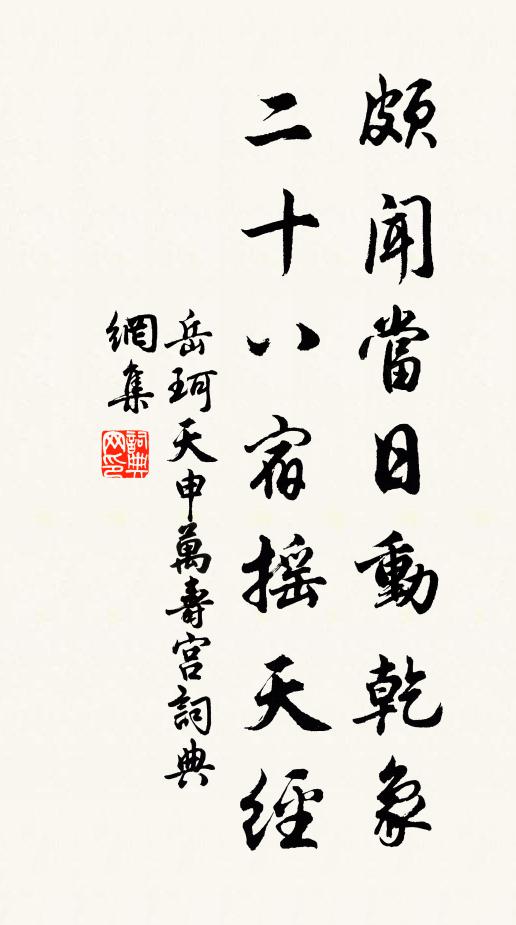 頗聞當日動乾象
二十八宿摇天經
岳珂天申萬壽宮詞典
網集
詞典网印